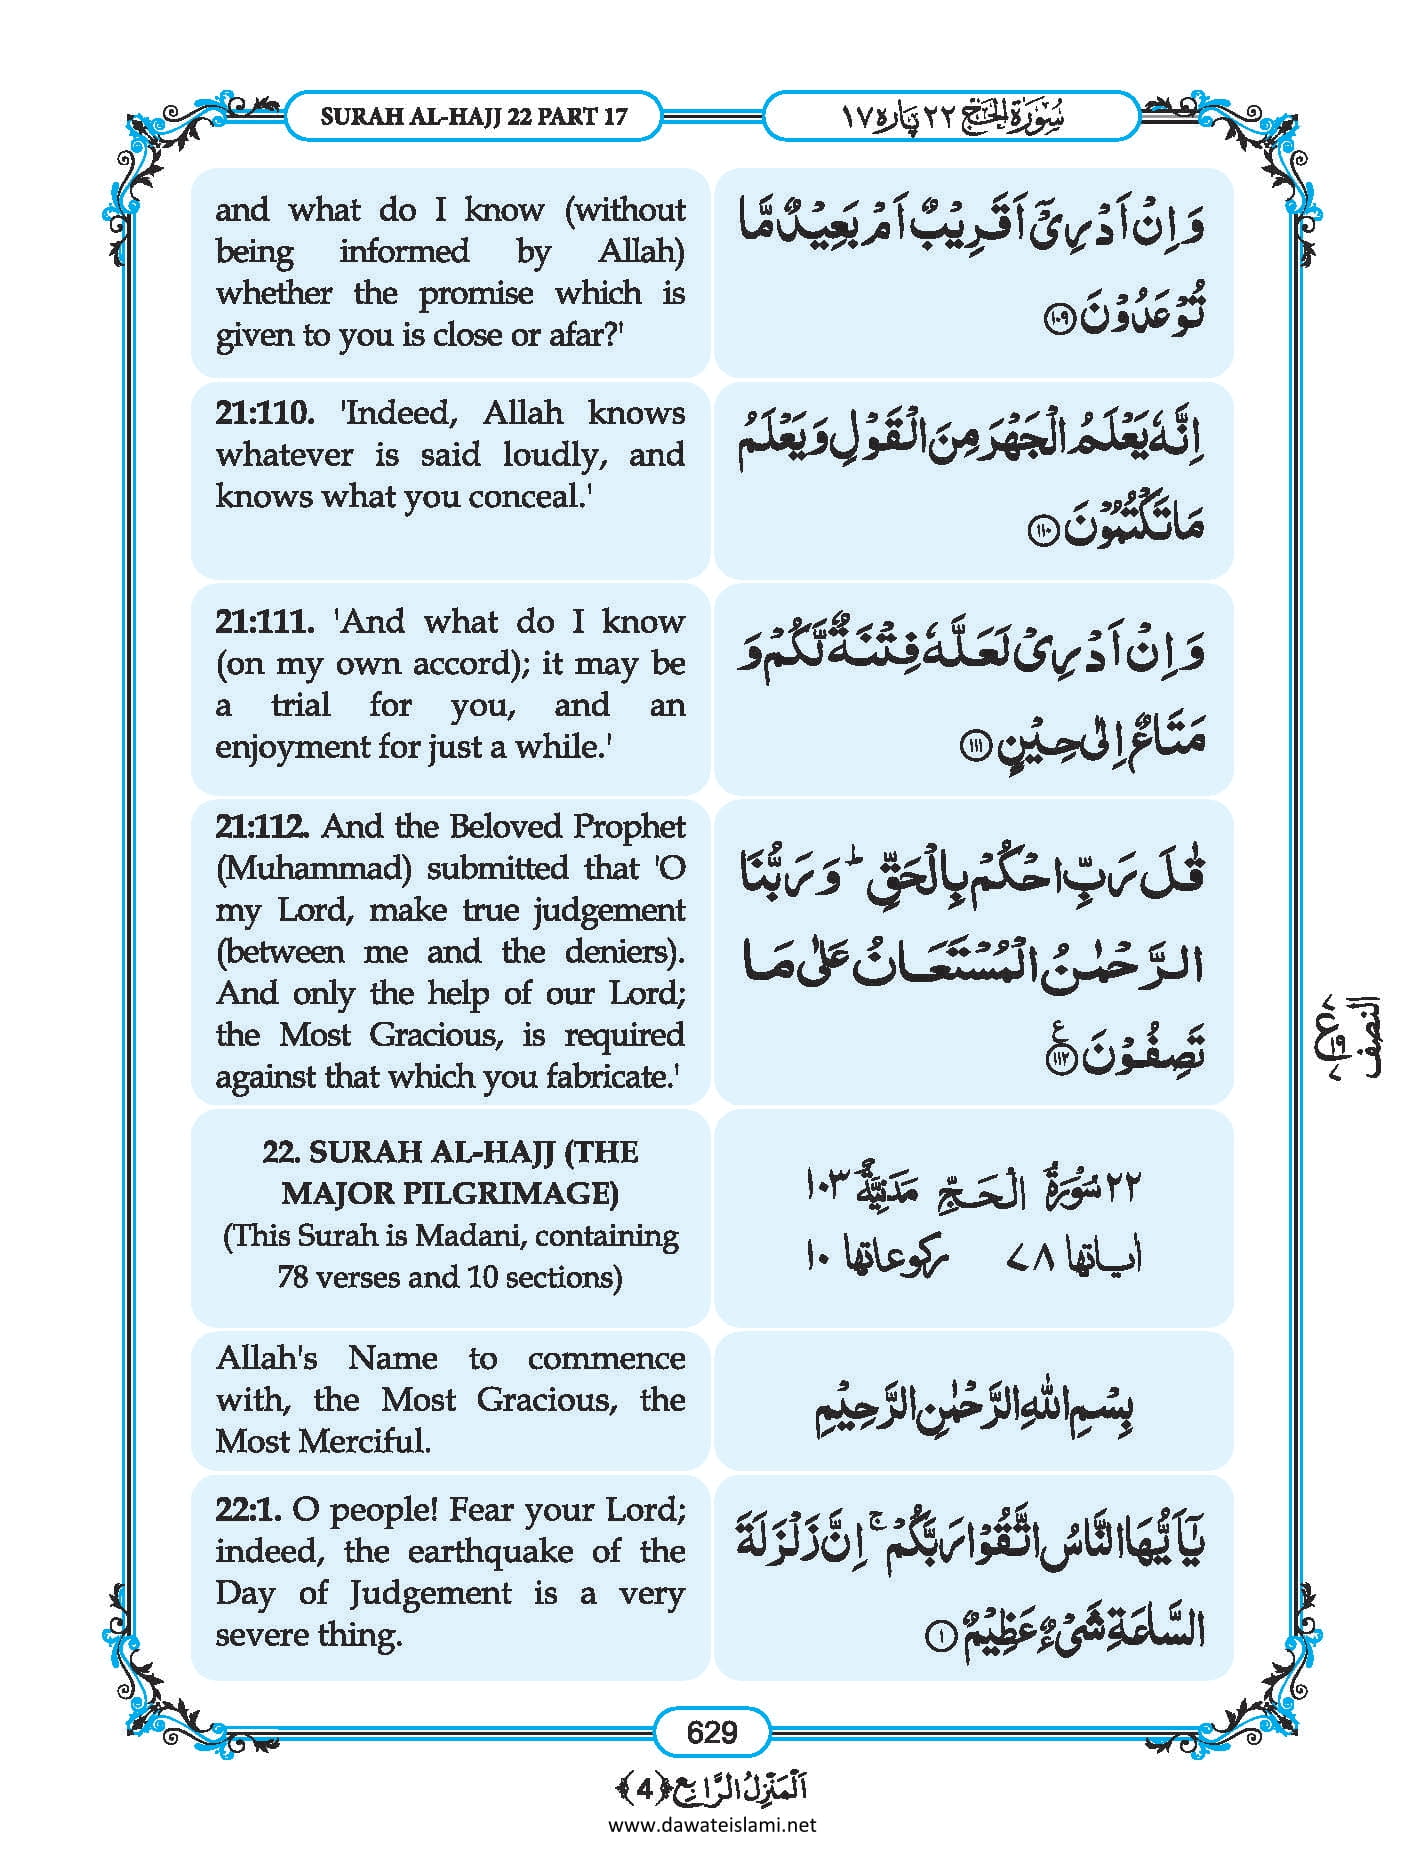 SURAH AL-HAJJ 22 PART 17
سُوْرَۃُ الْحَجّ ٢٢ پارہ ١٧
and what do I know (without
being informed by Allah)
whether the promise which is
given to you is close or afar?'
وَ اِنْ اَدْرِیْۤ اَقَرِیْبٌ اَمْ بَعِیْدٌ مَّا
تُوْعَدُوْنَ ﴿١٠٩﴾
21:110. 'Indeed, Allah knows
whatever is said loudly, and
knows what you conceal.'
اِنَّهٗ یَعْلَمُ الْجَهْرَ مِنَ الْقَوْلِ وَ یَعْلَمُ
مَا تَكْتُمُوْنَ ﴿١١٠﴾
21:111. 'And what do I know
(on my own accord); it may be
a trial for you, and an
enjoyment for just a while.'
وَ اِنْ اَدْرِیْ لَعَلَّهٗ فِتْنَةٌ لَّكُمْ وَ
مَتَاعٌ اِلٰى حِیْنٍ ﴿١١١﴾
21:112. And the Beloved Prophet
(Muhammad) submitted that 'O
my Lord, make true judgement
(between me and the deniers).
And only the help of our Lord;
the Most Gracious, is required
against that which you fabricate.'
قٰلَ رَبِّ احْكُمْ بِالْحَقِّ ؕ وَ رَبُّنَا
الرَّحْمٰنُ الْمُسْتَعَانُ عَلٰى مَا
تَصِفُوْنَ ﴿١١٢﴾ ع
النصف
ع
22. SURAH AL-HAJJ (THE
MAJOR PILGRIMAGE)
(This Surah is Madani, containing
78 verses and 10 sections)
٢٢ سُوْرَةُ الْحَجِّ مَدَنِيَّةٌ ١٠٣
اٰياتها ٧٨ ركوعاتها ١٠
Allah's Name to commence
with, the Most Gracious, the
Most Merciful.
بِسْمِ اللّٰهِ الرَّحْمٰنِ الرَّحِیْمِ
22:1. O people! Fear your Lord;
indeed, the earthquake of the
Day of Judgement is a very
severe thing.
یٰۤاَیُّهَا النَّاسُ اتَّقُوْا رَبَّكُمْ ۚ اِنَّ زَلْزَلَةَ
السَّاعَةِ شَیْءٌ عَظِیْمٌ ﴿١﴾
629
اَلْمَنْزِلُ الرَّابِع ﴿4﴾
www.dawateislami.net